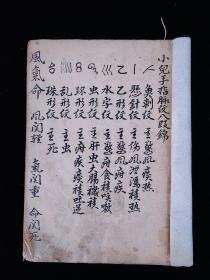 小兒手指脉紋八段錦
魚刺紋 主驚風痰熱
懸針紋 主傷風泄瀉積熱
乙形紋 主驚風疳疾
水字紋 主食積咳嗽
虫形紋 主肝虫大腸穢積
环形紋 主疳疾痰積吐逆
乱形紋 主虫
珠形紋 主死
風氣命 風関輕 氣関重 命関死